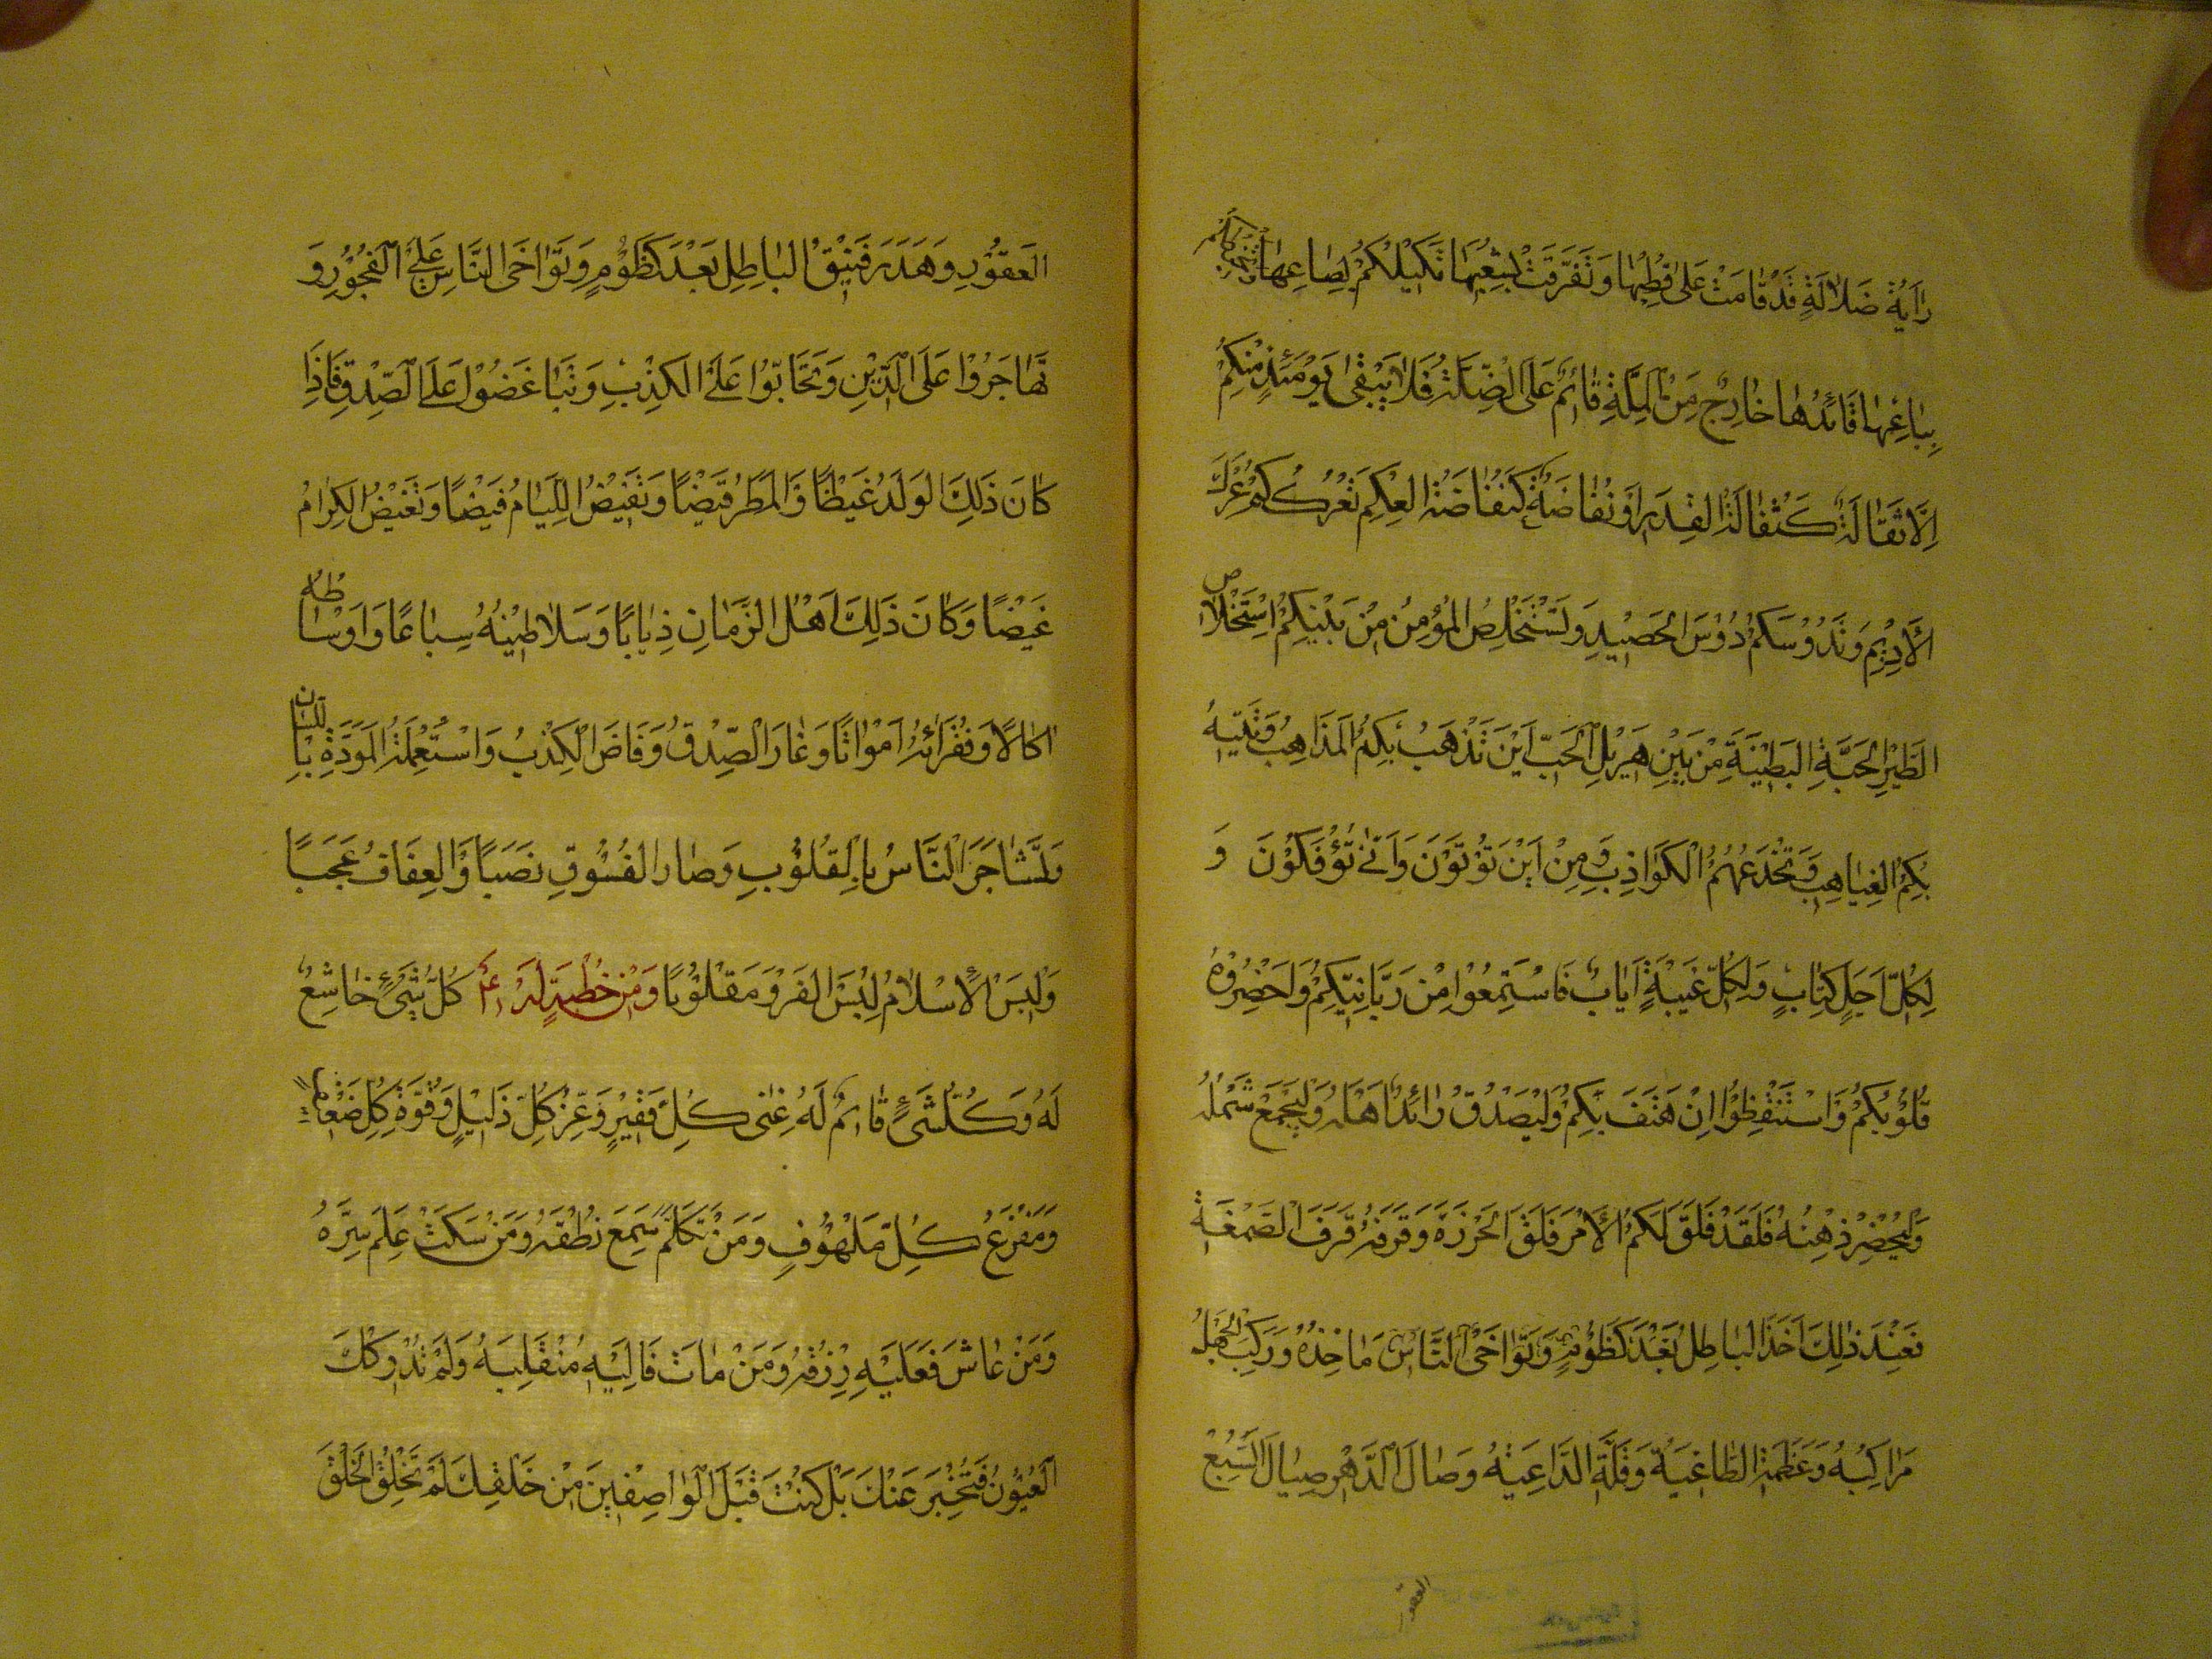 رَايَةُ ضَلَالَةٍ قَدْ قَامَتْ عَلَى قُطْبِهَا وَتَفَرَّقَتْ بِشُعَبِهَا تَكِيلُكُمْ بِصَاعِهَا تَخْبِطُكُمْ
بِبَاعِهَا قَائِدُهَا خَارِجٌ مِنَ الْمِلَّةِ قَائِمٌ عَلَى الضِّلَّةِ فَلَا يَبْقَى يَوْمَئِذٍ مِنْكُمْ
اِلَّا ثُفَالَةٌ كَثُفَالَةِ الْقِدْرِ اَوْ نُفَاضَةٌ كَنُفَاضَةِ الْعِكْمِ تَعْرُكُكُمْ عَرْكَ
الْاَدِيْمِ وَتَدُوْسُكُمْ دَوْسَ الْحَصِيْدِ وَتَسْتَخْلِصُ الْمُؤْمِنَ مِنْ بَيْنِكُمْ اسْتِخْلَاصَ
الطَّيْرِ الْحَبَّةَ الْبَطِيْنَةَ مِنْ بَيْنِ هَزِيْلِ الْحَبِّ اَيْنَ تَذْهَبُ بِكُمُ الْمَذَاهِبُ وَتَتِيْهُ
بِكُمُ الْغَيَاهِبُ وَتَخْدَعُهُمُ الْكَوَاذِبُ وَمِنْ اَيْنَ تُؤْتَوْنَ وَاَنَّى تُؤْفَكُوْنَ وَ
لِكُلِّ اَجَلٍ كِتَابٌ وَلِكُلِّ غَيْبَةٍ اِيَابٌ فَاسْتَمِعُوْا مِنْ رَبَّانِيِّكُمْ وَاَحْضِرُوْهُ
قُلُوْبَكُمْ وَاسْتَيْقِظُوْا اِنْ هَتَفَ بِكُمْ وَلْيَصْدُقْ رَائِدٌ اَهْلَهُ وَلْيَجْمَعْ شَمْلَهُ
وَلْيُحْضِرْ ذِهْنَهُ فَلَقَدْ فَلَقَ لَكُمُ الْاَمْرَ فَلْقَ الْخَرَزَةِ وَقَرَفَهُ قَرْفَ الصَّمْغَةِ
فَعِنْدَ ذٰلِكَ اَخَذَ الْبَاطِلُ مَاخِذَهُ وَرَكِبَ الْجَهْلُ
مَرَاكِبَهُ وَعَظُمَتِ الطَّاغِيَةُ وَقَلَّةِ الدَّاعِيَةُ وَصَالَ الدَّهْرُ صِيَالَ السَّبُعِ
الْعَقُوْرِ وَهَدَرَ فَنِيْقُ الْبَاطِلِ بَعْدَ كَظُوْمٍ وَتَوَاخَى النَّاسُ عَلَى الْفُجُوْرِ وَ
تَهَاجَرُوْا عَلَى الدِّيْنِ وَتَحَابَّوْا عَلَى الْكَذِبِ وَتَبَاغَضُوْا عَلَى الصِّدْقِ فَاِذَا
كَانَ ذَلِكَ الْوَلَدُ غَيْظًا وَالْمَطَرُ قَيْضًا وَتَفِيْضُ اللِّيَامُ فَيْضًا وَتَغِيْضُ الْكِرَامُ
غَيْضًا وَكَانَ ذَلِكَ اَهْلُ الزَّمَانِ ذِيَابًا وَسَلَاطِيْنُهُ سِبَاعًا وَاَوْسَاطُهُ
اُكَّالًا وَفُقَرَائُهُ اَمْوَاتًا وَغَارَ الصِّدْقُ وَفَاضَ الْكِذْبُ وَاسْتُعْمِلَةِ الْمَوَدَّةِ بِاللِّسَانِ
وَتَشَاجَرَ النَّاسُ بِالْقُلُوْبِ وَصَارَ الْفُسُوْقِ نَصَبًا وَالْعِفَافُ عَجَبًا
وَلُبِسَ الْاِسْلَامُ لُبْسَ الْفَرْوِ مَقْلُوْبًا وَمِنْ خُطْبَةٍ لَهُ ع كُلُّ شَيْءٍ خَاشِعٌ
لَهُ وَكُلُّ شَيْءٍ قَائِمٌ لَهُ غِنَى كُلِّ فَقِيْرٍ وَعِزُّ كُلِّ ذَلِيْلٍ وَقُوَّةُ كُلِّ ضَعِيْفٍ
وَمَفْزَعُ كُلِّ مَلْهُوْفٍ وَمَنْ تَكَلَّمَ سَمِعَ نُطْقَهُ وَمَنْ سَكَتَ عَلِمَ سِرَّهُ
وَمَنْ عَاشَ فَعَلَيْهِ رِزْقُهُ وَمَنْ مَاتَ فَاِلَيْهِ مُنْقَلَبُهُ وَلَمْ تُدْرِكْكَ
الْعُيُوْنُ فَتُخْبِرَ عَنْكَ بَلْ كُنْتَ قَبْلَ الْوَاصِفِيْنَ مِنْ خَلْقِكَ لَمْ تَخْلُقِ الْخَلْقَ